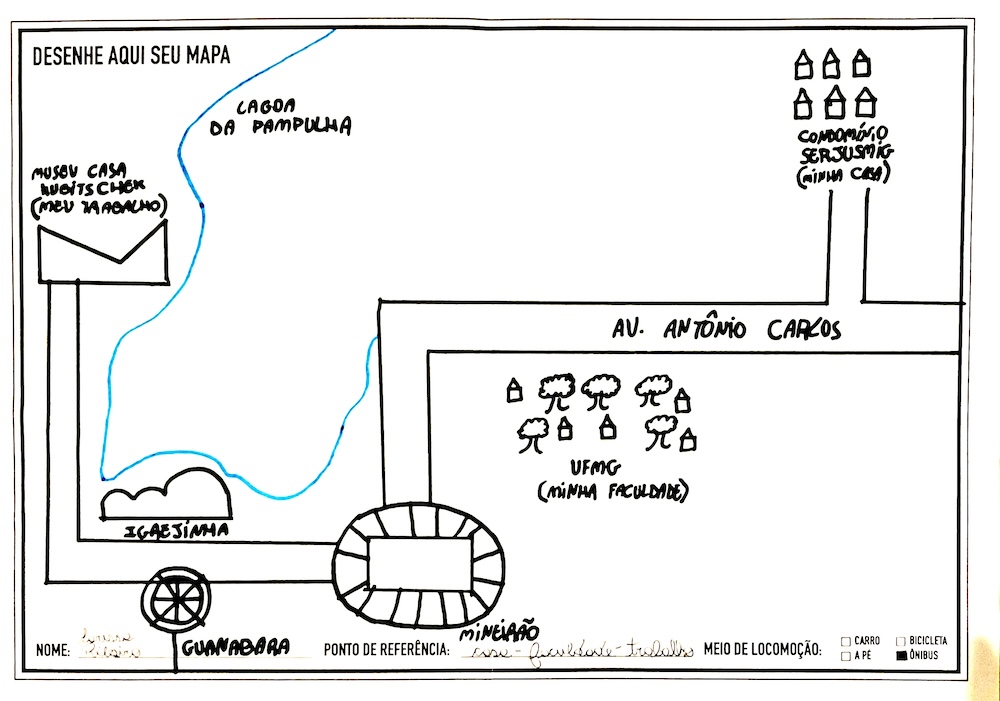 DESENHE AQUI SEU MAPA
LAGOA
DA PAMPULHA
MUSEU CASA
KUBITSCHEK
(MEU TRABALHO)
CONDOMÍNIO
SERJUSMIG
(MINHA CASA)
AV. ANTÔNIO CARLOS
UFMG
(MINHA FACULDADE)
IGREJINHA
MINEIRÃO
GUANABARA
NOME:
Ribeiro
PONTO DE REFERÊNCIA: casa - faculdade - trabalho
MEIO DE LOCOMOÇÃO:
CARRO
BICICLETA
A PÉ
ÔNIBUS